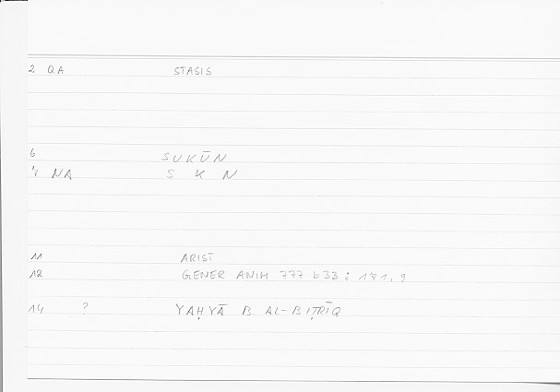 2 QA STASIS
6 SUKŪN
NA S K N
11 ARIST
12 GENER ANIM 777 b33 : 171, 9
14 ? YAḤYĀ B AL-BIṬRĪQ